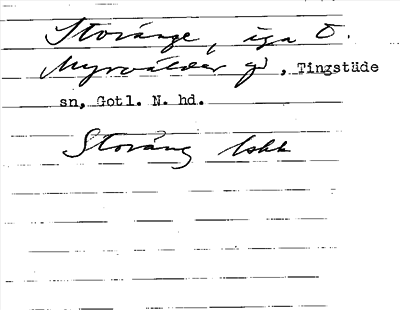 Storänge, äga Ö.
Myrvälder gd, Tingstäde
sn, Gotl. N. hd.
Storäng